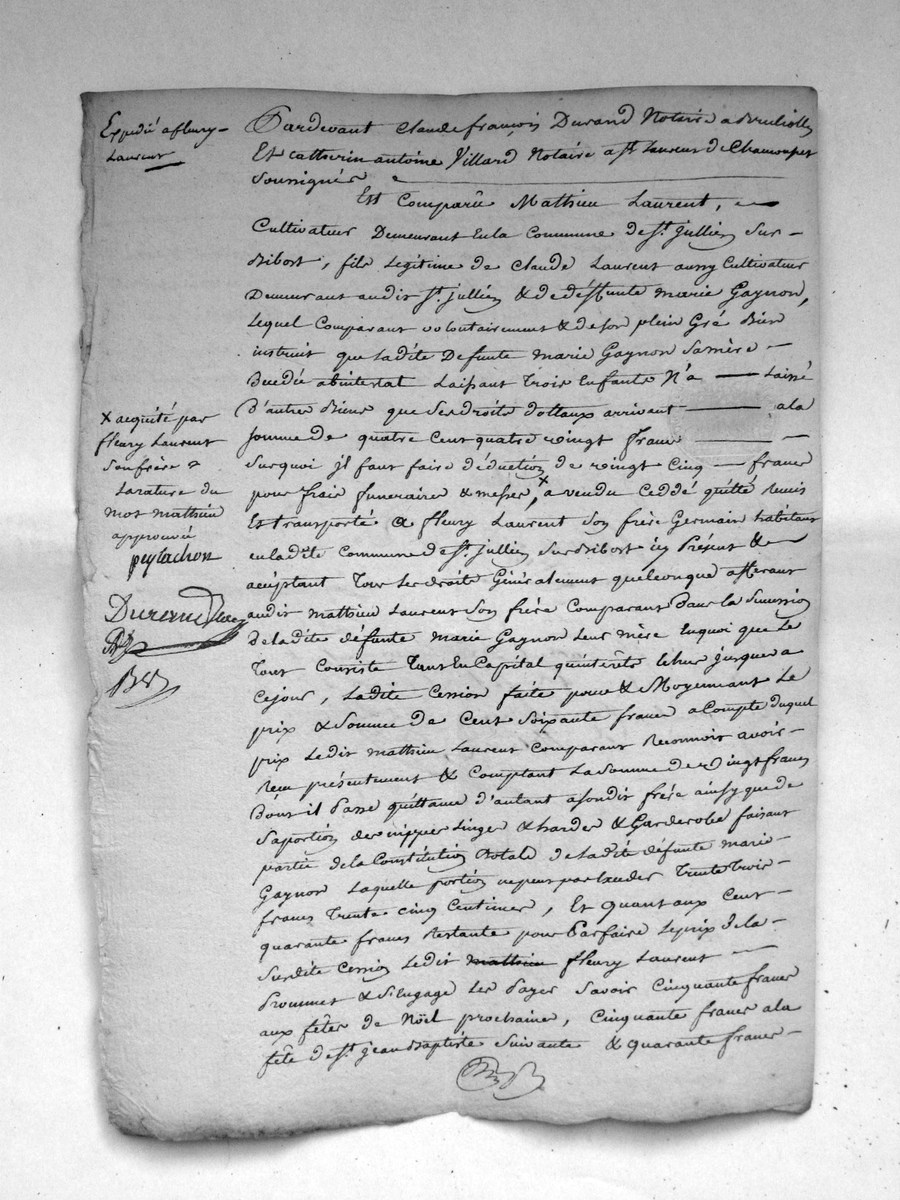 Expedié a fleury
Laurent
Pardevant Claude françois Durand Notaire a Brulliolles
Et Catherin antoine Villard Notaire a St Laurent de Chamousset
Soussignés
Est Comparû Mathieu Laurent,
Cultivateur Demeurant En la Commune de St jullien Sur
Bibost, fils Legitime de Claude Laurent aussy Cultivateur
Demeurant audit St jullien & de deffunte marie Gaynon,
Lequel Comparant volontairement & de son plein Gré Bien
instruit que Ladite Defunte marie Gaynon Sa mère
Decedée abintestat Laissant Trois Enfants N'a Laissé
D'autre Biens que Ses droits dottaux arrivant a la
somme de quatre Cent quatre vingt francs
Surquoi jl faut faire déduction de vingt Cinq francs
pour frais funeraires & messes, x a vendu Ceddé quitté Remis
Et transporté a fleury Laurent Son frère Germain habitant
en Ladite Commune de St jullien Sur Bibost icy Présent &
acceptant Tous Les droits Généralement quelconque afferant
audit mathieu Laurent Son frère Comparant Dans la Succession
De Ladite défunte marie Gaynon Leur mère En quoi que Le
Tout Consiste Tant En Capital qu'intérêts échus jusqu'a
Ce jour, Ladite Cession faite pour & Moyennant Le
prix & Somme de Cent Soixante francs a Compte duquel
prix Ledit mathieu Laurent Comparant Reconnoit avoir
Reçu présentement & Comptant La Somme de vingt francs
Dont il Passe quittance d'autant a son dit frère ainsy que de
Sa portion des nippes Linges & hardes & Garderobe faisant
partie de la Constitution Dotale de Ladite défunte marie
Gaynon Laquelle portion ne peut pas Exceder Trente Trois
francs Trente Cinq Centimes, Et quant aux Cent
quarante francs Restants pour Parfaire Le prix de la
Susdite Cession Ledit mathieu fleury Laurent
Prommet & S'Engage Les Payer Savoir Cinquante francs
aux fêtes de Noël prochaines, Cinquante francs a la
fête de St jean Baptiste Suivante & quarante francs
x acquité par
fleury Laurent
son frère &
La rature du
mot mathieu
approuvé
peylachon
Durand